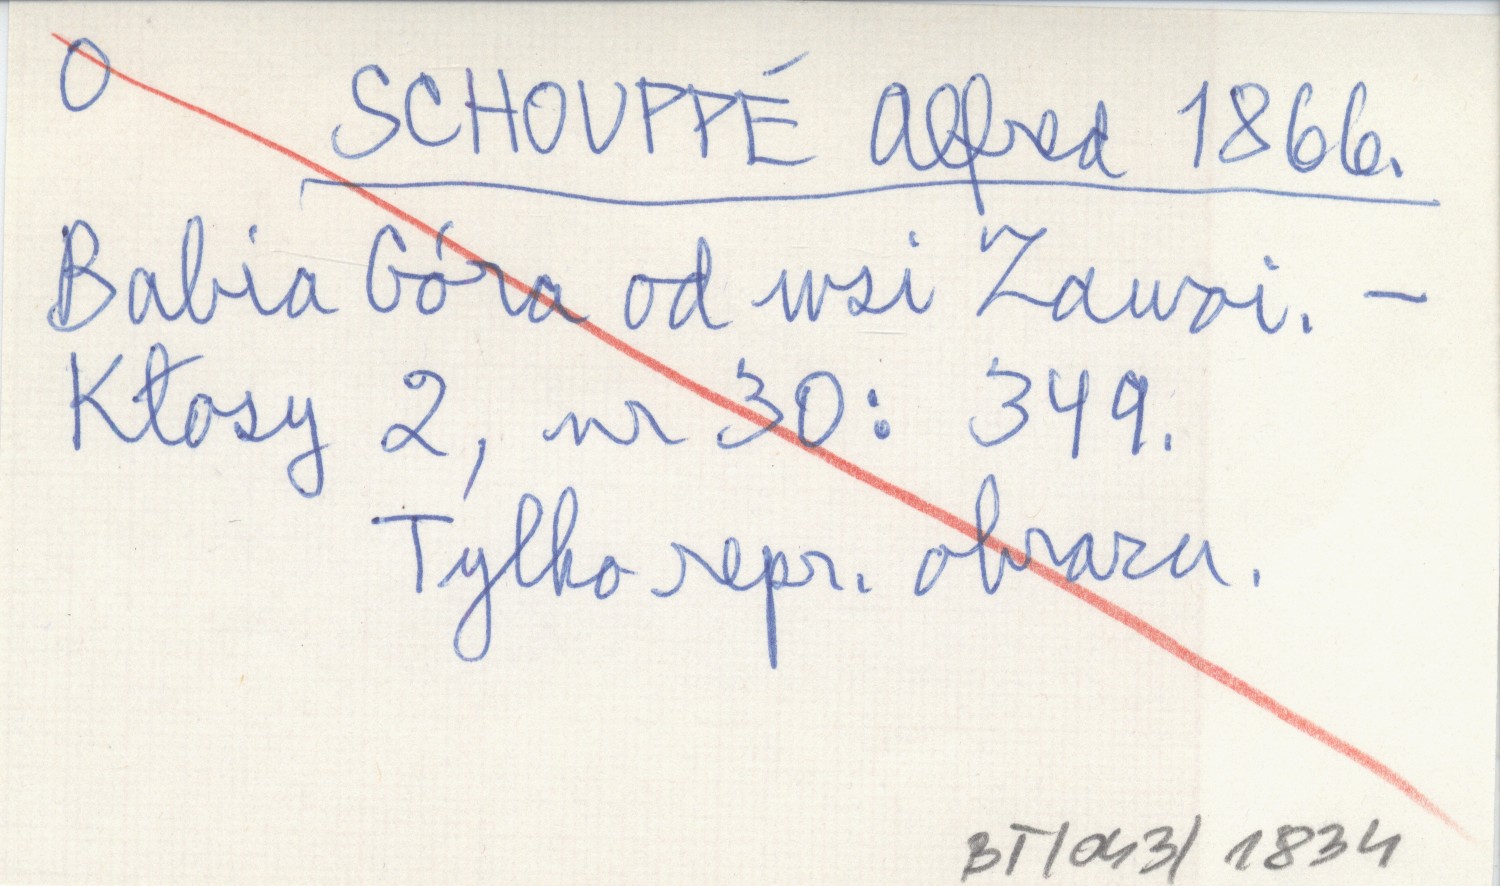 O
SCHOUPPÉ Alfred 1866.
Babia Góra od wsi Zawoi. –
Kłosy 2, nr 30: 349.
Tylko repr. obrazu.
BT/043/1834